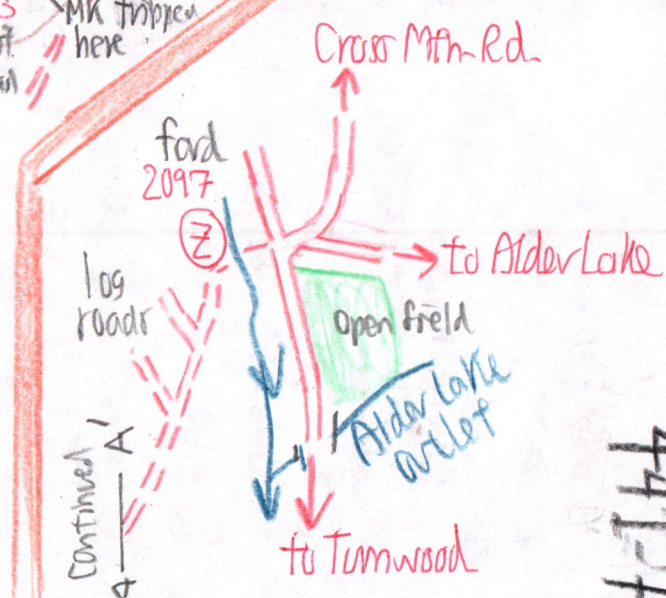 MK tripped
here
3
Cross Mtn Rd
ford
2097
Z
to Alder Lake
log
roads
Open field
Alder Lake
outlet
Continued
A A'
to Turnwood